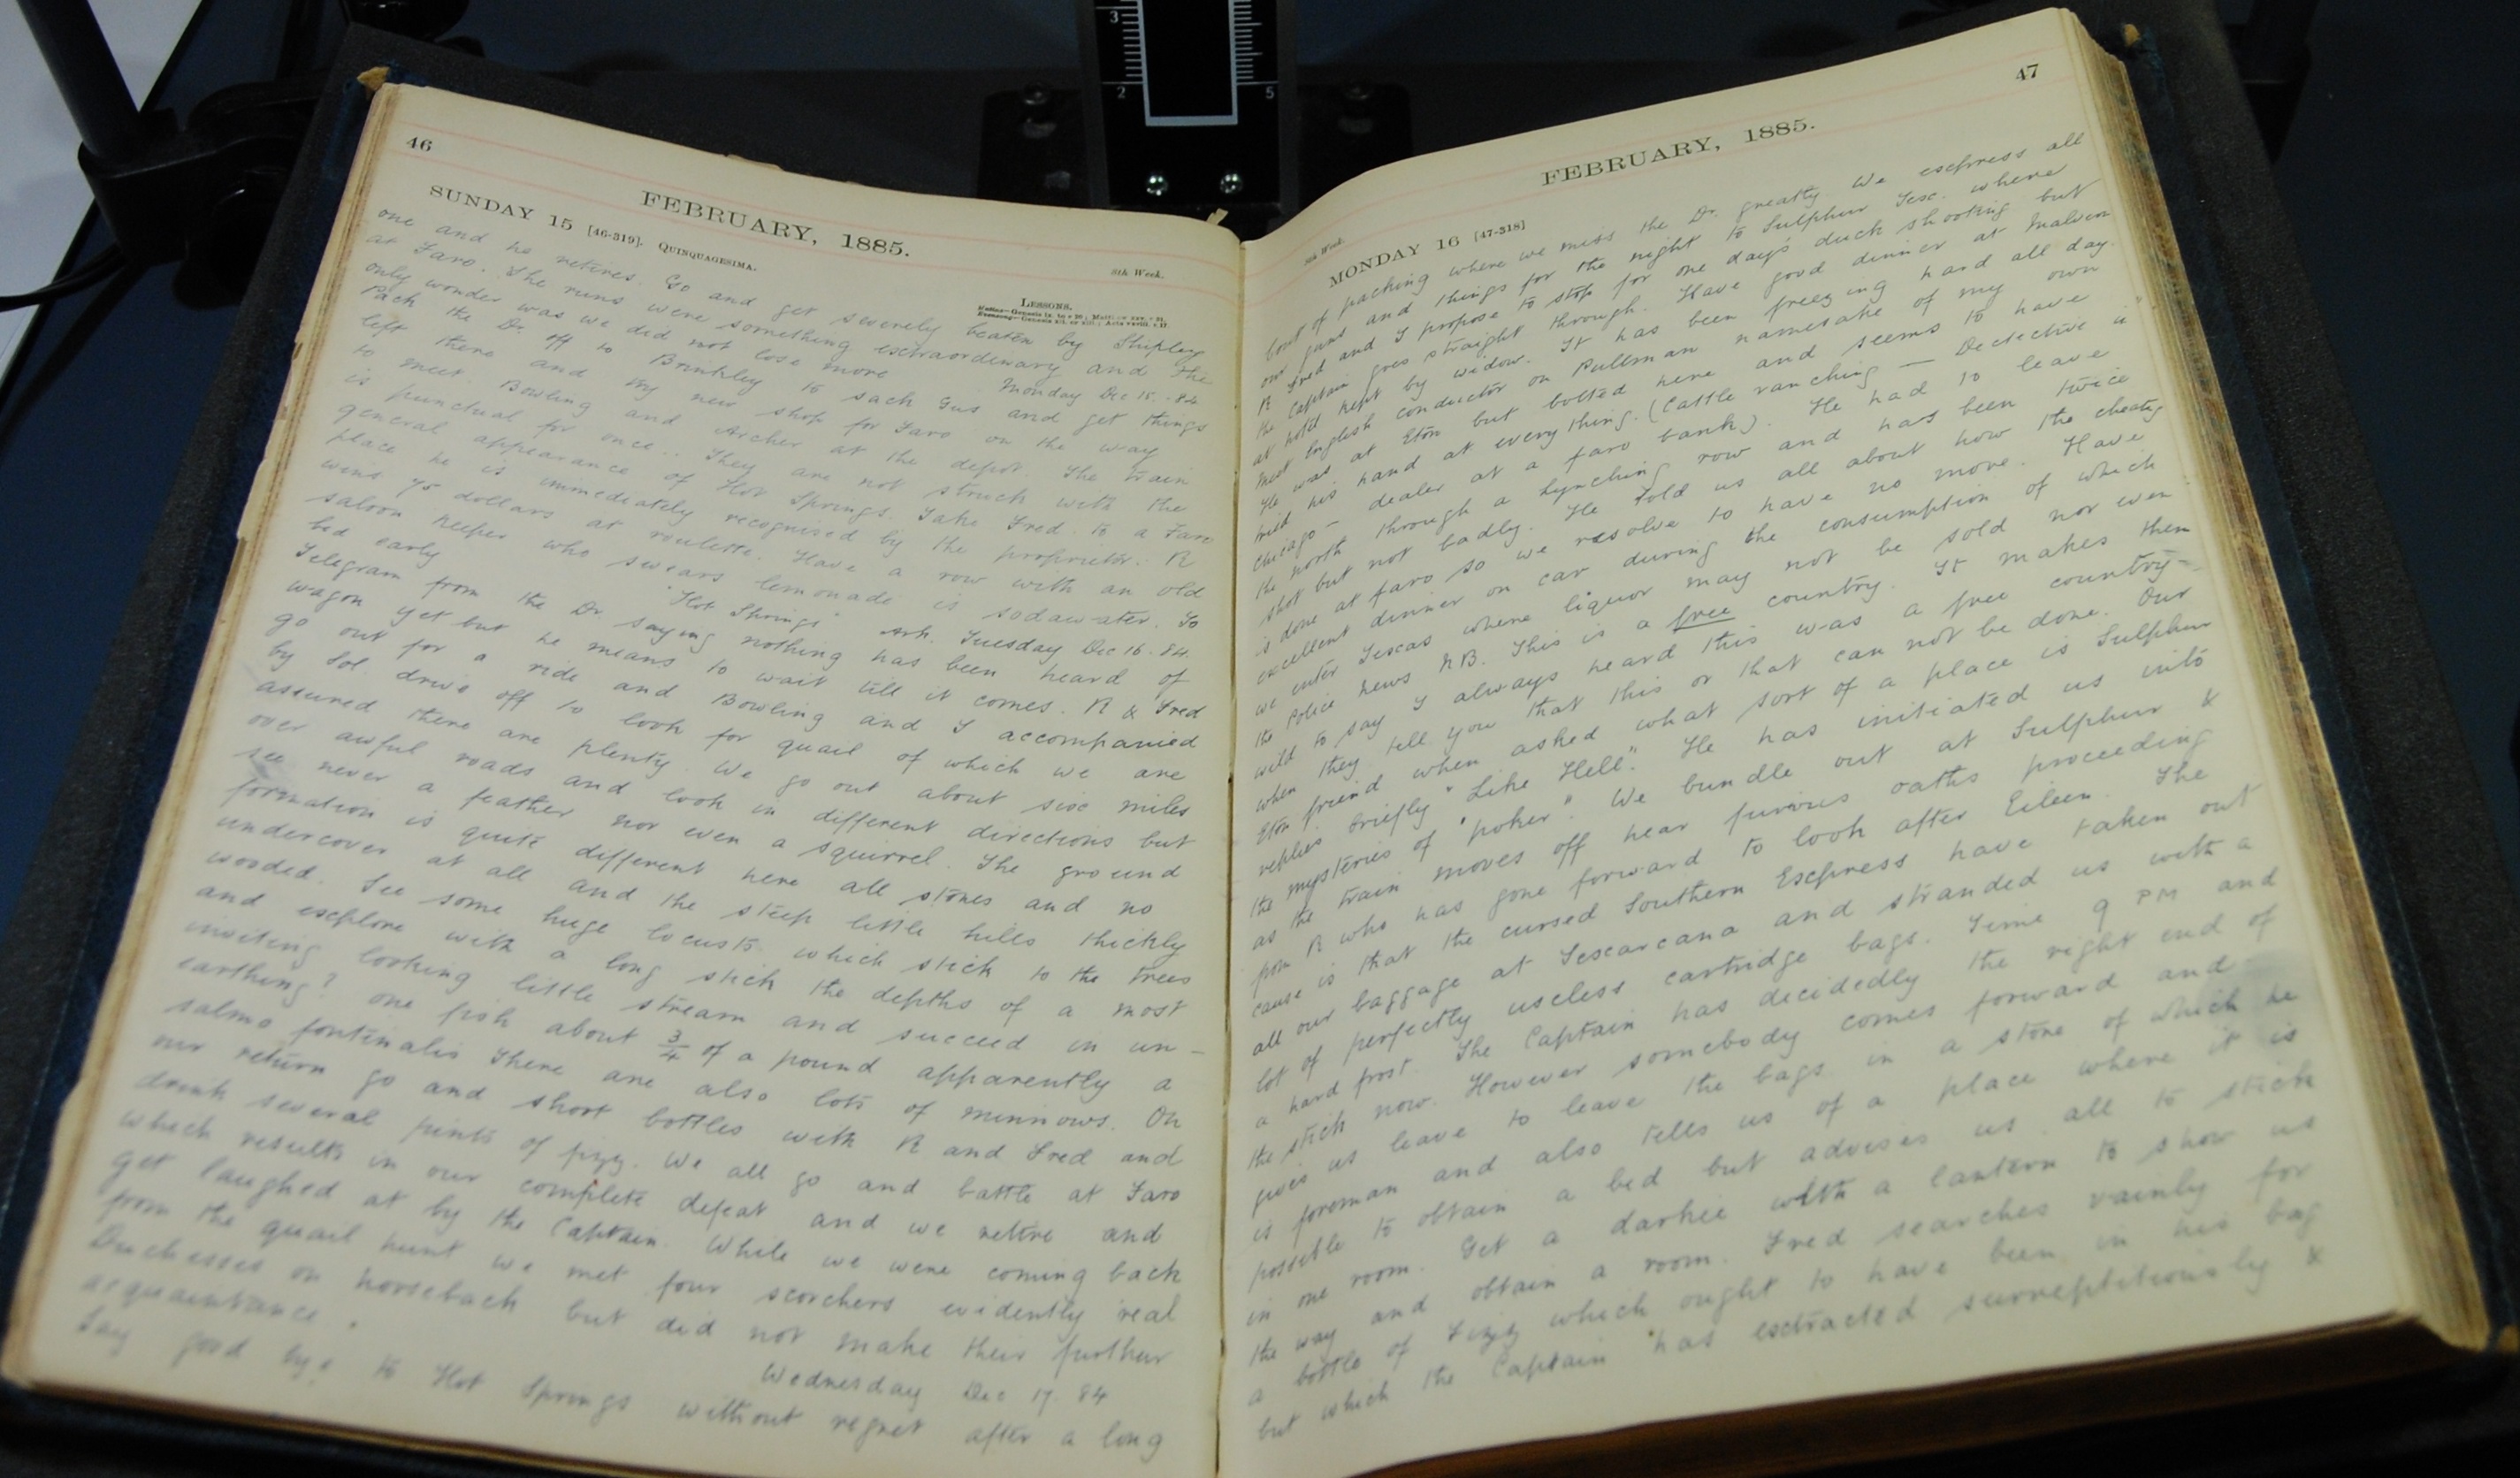 3
2
5
46
FEBRUARY, 1885.
SUNDAY 15 [46-319]. QUINQUAGESIMA.
8th Week.
LESSONS.
one and he retires. Go and get severely beaten by Shipley
at Faro. The runs were something extraordinary and the
only wonder was we did not lose more Monday Dec 15. 84
Pack the Dr. off to Brinkley to sack Gus and get things
left there and try new shop for Faro on the way
to meet Bowling and Archer at the depot. The train
is punctual for once.. They are not struck with the
general appearance of Hot Springs. Take Fred to a Faro
place he is immediately recognised by the proprietor. R
wins 75 dollars at roulette. Have a row with an old
saloon keeper who swears lemonade is sodawater. To
bed early "Hot Springs" Ark. Tuesday Dec 16. 84.
Telegram from the Dr. saying nothing has been heard of
wagon yet but he means to wait till it comes. R & Fred
go out for a ride and Bowling and I accompanied
by Sol drive off to look for quail of which we are
assured there are plenty. We go out about sixe miles
over awful roads and look in different directions but
see never a feather nor even a squirrel. The ground
formation is quite different here all stones and no
undercover at all and the steep little hills thickly
wooded. See some huge locusts which stick to the trees
and explore with a long stick the depths of a most
inviting looking little stream and succeed in un-
earthing? one fish about 3/4 of a pound apparently a
salmo fontinalis There are also lots of minnows. On
our return go and shoot bottles with R and Fred and
drink several pints of fizz. We all go and battle at Faro
which results in our complete defeat and we retire and
get laughed at by the Captain. While we were coming back
from the quail hunt we met four scorchers evidently real
Duchesses on horseback but did not make their further
acquaintance.
Wednesday Dec 17. 84
Say good bye to Hot Springs without regret after a long
47
FEBRUARY, 1885.
8th Week.
MONDAY 16 [47-318]
bout of packing where we miss the Dr. greatly We express all
our guns and things for the night to Sulphur Tex. where
R Fred and I propose to stop for one day's duck shooting but
the Captain goes straight through. Have good dinner at Malvern
at hotel kept by widow. It has been freezing hard all day.
Meet English conductor on Pullman namesake of my own
He was at Eton but bolted here and seems to have
tried his hand at everything. (Cattle ranching — Dectective in
Chicago - dealer at a faro bank). He had to leave
the north through a lynching row and has been twice
shot but not badly. He told us all about how the cheating
is done at faro so we resolve to have no more. Have
excellent dinner on car during the consumption of which
we enter Texas where liquor may not be sold nor even
the Police news NB. This is a free country. It makes them
wild to say I always heard this was a free country-
when they tell you that this or that can not be done. Our
Eton friend when asked what sort of a place is Sulphur
replies briefly "Like Hell." He has initiated us into
the mysteries of "poker". We bundle out at Sulphur &
as the train moves off hear furious oaths proceeding
from R who has gone forward to look after Eileen. The
cause is that the cursed Southern Express have taken out
all our baggage at Texarcana and stranded us with a
lot of perfectly useless cartridge bags. Time 9 PM and
a hard frost. The Captain has decidedly the right end of
the stick now. However somebody comes forward and
gives us leave to leave the bags in a store of which he
is foreman and also tells us of a place where it is
possible to obtain a bed but advises us all to stick
in one room. Get a darkie with a lantern to show us
the way and obtain a room. Fred searches vainly for
a bottle of Fizz which ought to have been in his bag
but which the Captain has extracted surreptitiously &